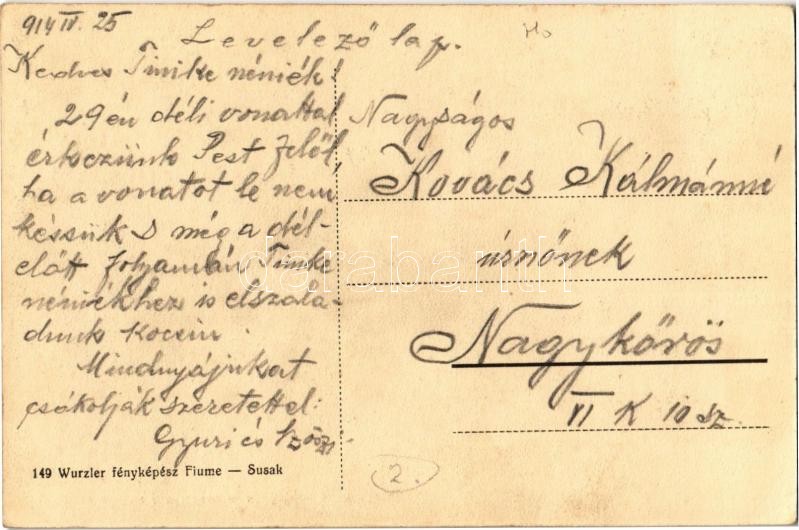 914 IV. 25
Levelező lap.
Kedves Timike néniék!
29én déli vonattal
érkezünk Pest felől,
ha a vonatot le nem
késsük s még a dél-
előtt folyamán Timike
néniékhez is elszala-
dunk kocsin.
Mindnyájukat
csókolják szeretettel:
Gyuri és
149 Wurzler fényképész Fiume — Susak
Nagyságos
Kovács Kálmánné
úrnőnek
Nagykőrös
VI K 10 sz.
2.
darabanth